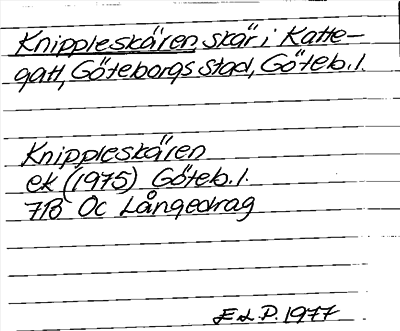 Knippleskären, skär i Katte-
gatt, Göteborgs stad, Göteb. l.
Knippleskären
ek (1975) Göteb. l.
7B Oc Långedrag
E d. P. 1977